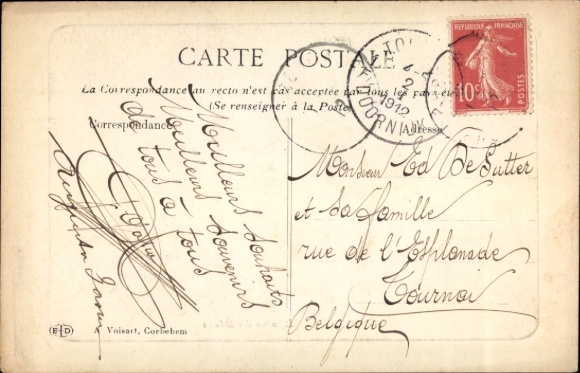 CARTE POSTALE
La Correspondance au recto n'est pas acceptée par tous les pays étr
(Se renseigner à la Poste)
Correspondance
Adresse
Meilleurs souhaits
Meilleurs souvenirs
de tous à
tous
Monsieur Ed De Sutter
et sa famille
rue de l'Esplanade
Tournai
Belgique
REPUBLIQUE FRANÇAISE
10c
POSTES
1912
DOORNIK
ELD
Voisart, Corbehem